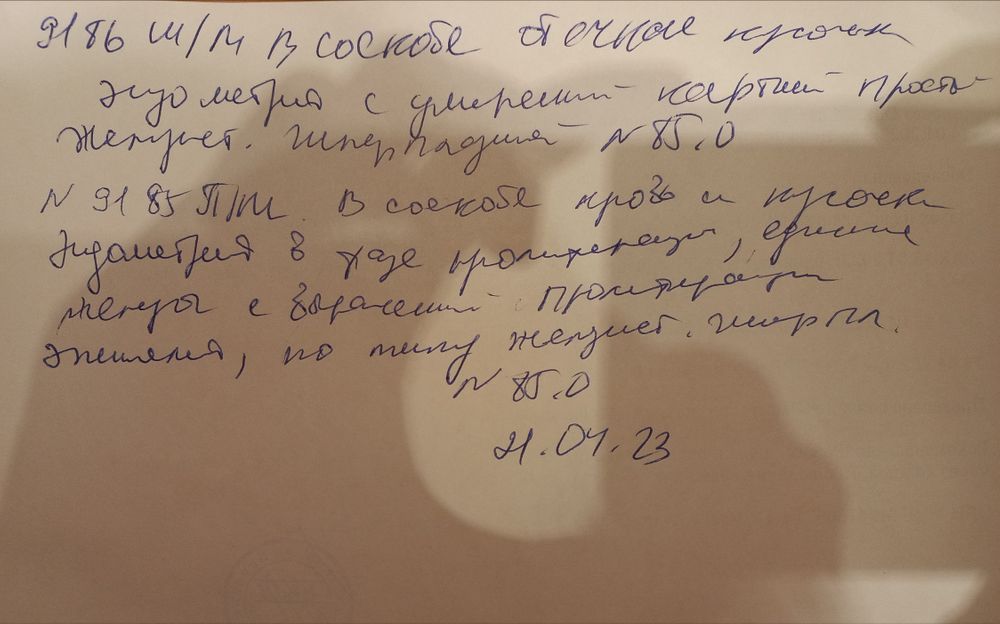 9186 Ш/М В соскобе отечные кусочки
эндометрия с умеренной картиной простой
железист. гиперплазией N 85.0
N 9185 П/М. В соскобе кровь и кусочки
эндометрия в фазе пролиферации, единичные
железы с выраженной пролиферации
эпителия, по типу железист. гиперпл.
N 85.0
21.04.23